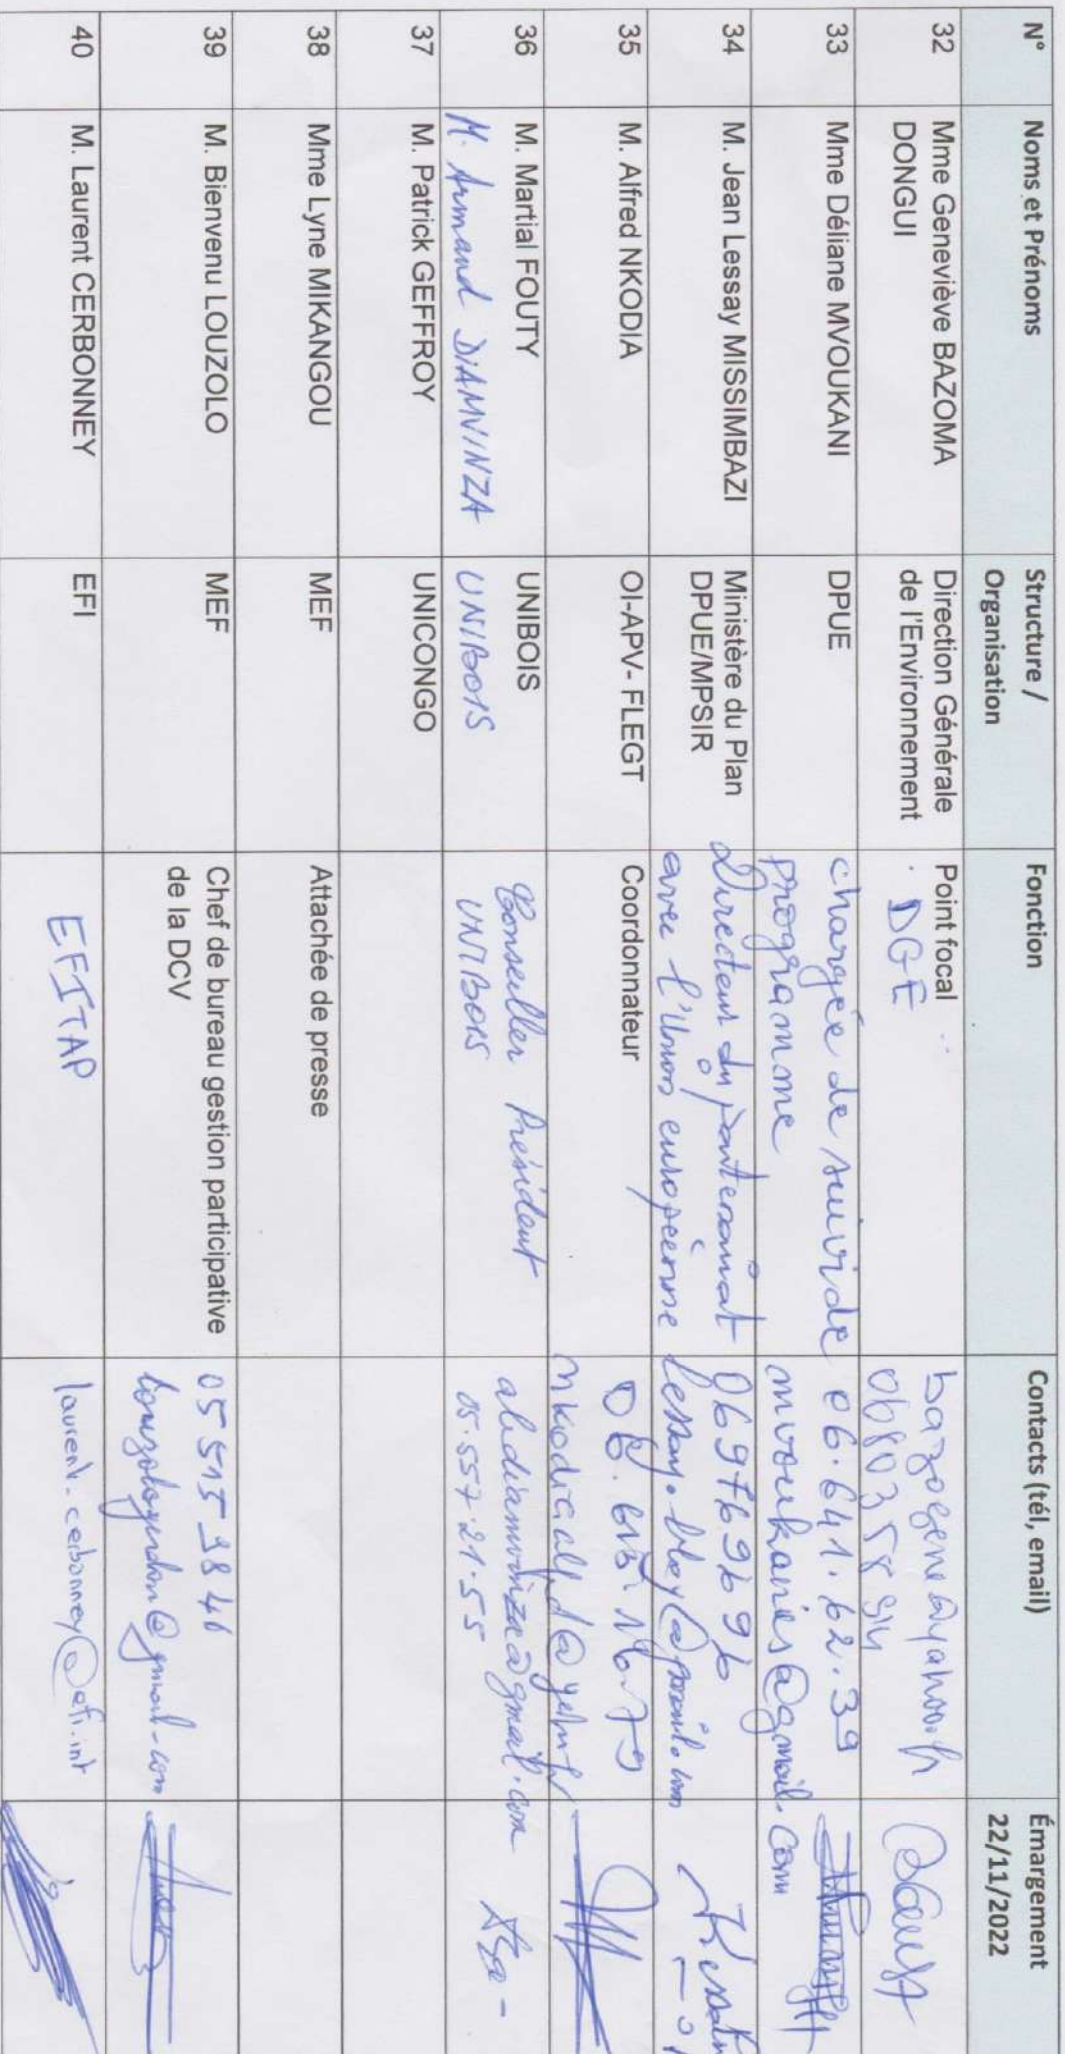 N° Noms et Prénoms Structure / Organisation Fonction Contacts (tél, email) Émargement 22/11/2022
32 Mme Geneviève BAZOMA DONGUI Direction Générale de l'Environnement Point focal DGE
33 Mme Déliane MVOUKANI DPUE chargée de suivi de programme 06.641.62.39 mvoukanies@gmail.com
34 M. Jean Lessay MISSIMBAZI Ministère du Plan DPUE/MPSIR Directeur du partenariat avec l'Union européenne 069769696
35 M. Alfred NKODIA OI-APV- FLEGT Coordonnateur
36 M. Martial FOUTY UNIBOIS
M. Armand DIAMVINZA UNIBOIS Conseiller Président UNIBOIS 05.557.21.55
37 M. Patrick GEFFROY UNICONGO
38 Mme Lyne MIKANGOU MEF Attachée de presse
39 M. Bienvenu LOUZOLO MEF Chef de bureau gestion participative de la DCV
40 M. Laurent CERBONNEY EFI EFITAP laurent.cerbonney@efi.int